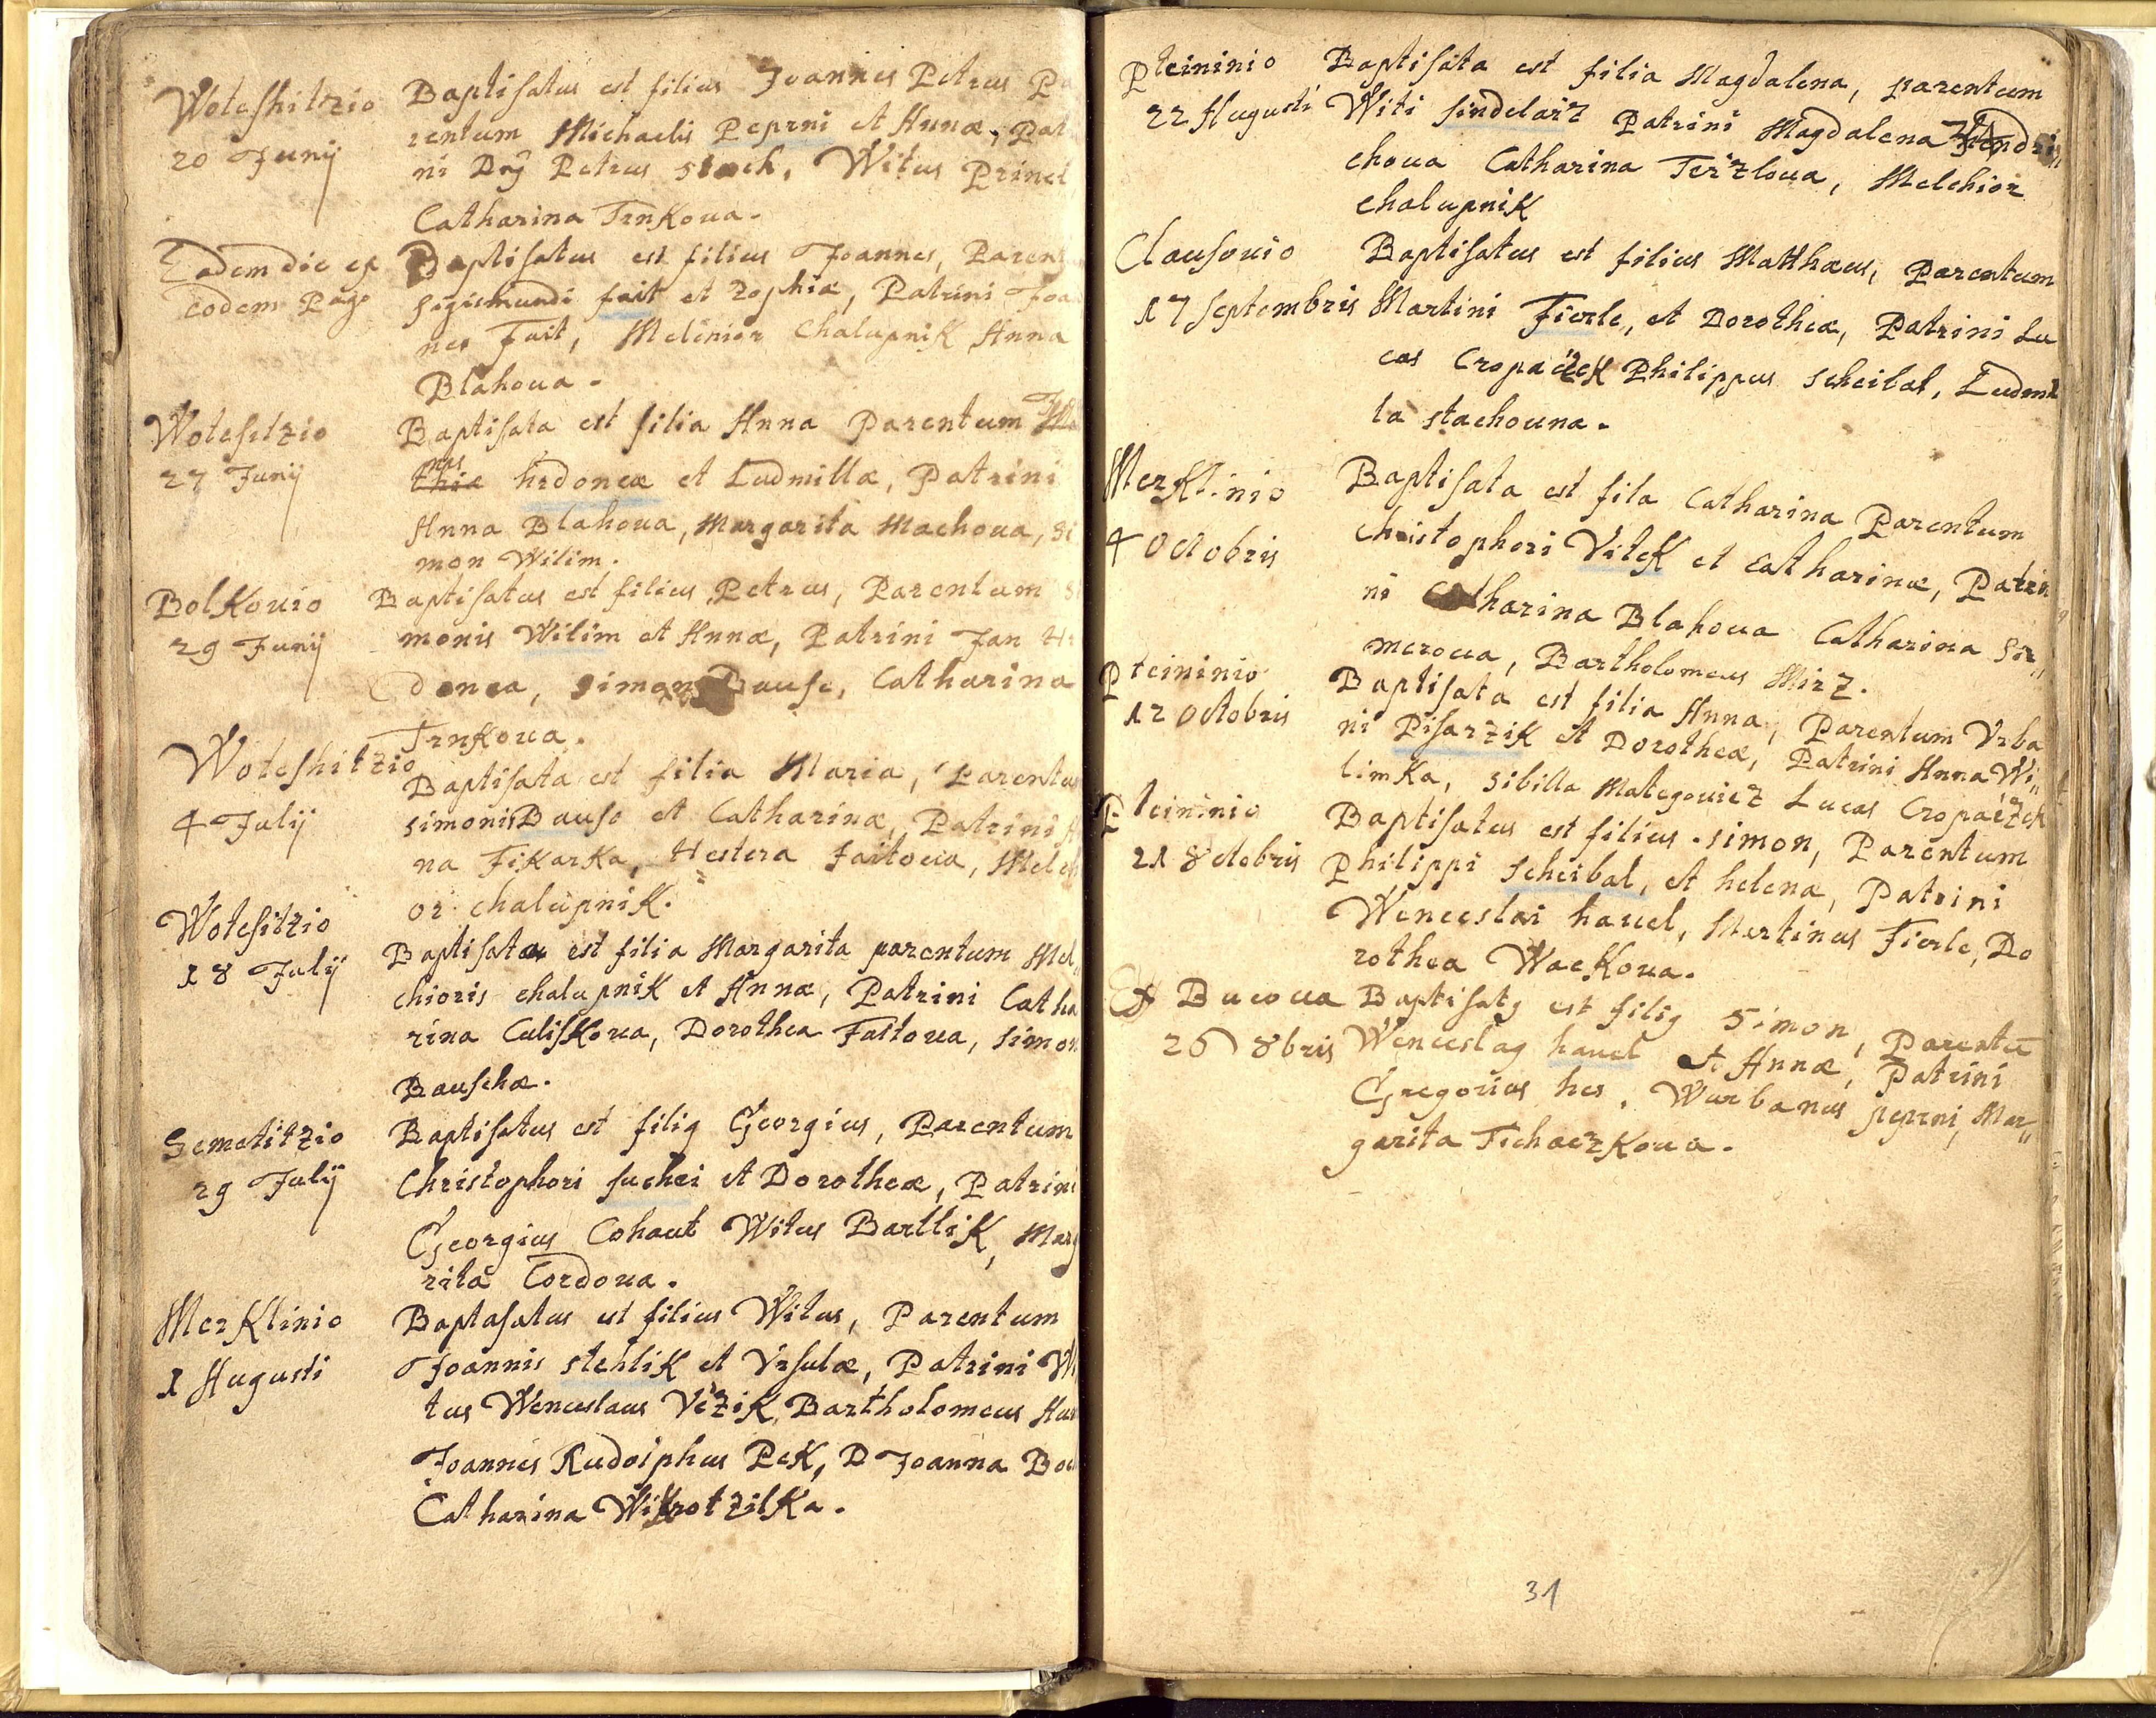 Woteshitzio Baptisatus est filius Joannes Petrus Pa
20 Junij rentum Michaelis Peprni et Annæ, Pat
ni Petrus Witus
Catharina Trnkoua.
Eadem die ex Baptisatus est filius Joannes, Parent
eodem Pago Sigismundi fait et Zophiæ, Patrini Joa
nes Fait, Melchior Chalupnik Anna
Blahoua.
Wotesitzio Baptisata est filia Anna Parentum
27 Junij thiæ hrdoneæ et Ludmillæ, Patrini
Anna Blahoua, Margarita Machoua, Si
mon Wilim.
Bolkouio Baptisatus est filius Petrus, Parentum Si
29 Junij monis Wilim et Annæ, Patrini Jan Hr
donea, Simon Bause, Catharina
Trnkoua.
Woteshitzio Baptisata est filia Maria, Parentu
4 Julij simonis Bause et Catharinæ, Patrini A
na Fikarka, Hestera Faitoua, Melch
or chalupnik.
Wotesitzio
18 Julij Baptisata est filia Margarita parentum Mel„
chioris chalupnik et Annæ, Patrini Catha
rina Culiskoua, Dorothea Faitoua, Simon
Bauschæ.
Semetitzio Baptisatus est filig Georgius, Parentum
29 Julij Christophori suchei et Dorotheæ, Patrini
Georgius Cohaut Witus Bartlik, Marg
rita Cordoua.
Merklinio Baptasatus est filius Witus, Parentum
1 Augusti Joannis stehlik et Vrsulæ, Patrini Wi
tus Wenceslaus Vèzik, Bartholomeus
Joannes Rudolphus Pek, D Joanna
Catharina
Pteininio Baptisata est filia Magdalena, parentum
22 Augusti Witi sindelarz Patrini Magdalena Hendri„
choua Catharina Terzloua, Melchior
chalupnik
Clausouio Baptisatus est filius Matthæus, Parentum
17 Septembris Martini Fierle, et Dorotheæ, Patrini Lu
cas Cropaczek Philippus Scheibal, Ludmil
la stachouna.
Merklinio Baptisata est fila Catharina Parentum
4 Octobris christophori Vitek et Catharinæ, Patri
ni Catharina Blahoua Catharina Sir„
meroua, Bartholomeus Mirz.
Pteininio Baptisata est filia Anna, Parentum Vrba
12 Octobris ni Pisarzik et Dorotheæ, Patrini Anna Wi„
limka, Sibilla Mategouicz Lucas Cropaczek
Pteininio Baptisatus est filius Simon, Parentum
21 8ctobris Philippi Scheibal, et helenæ, Patrini
Wenceslai hauel, Martinus Fierle, Do
rothea Wackoua.
Ex Bucoua Baptisatg est filig Simon, Parentū
26 8bris Wenceslag hauel et Annæ, Patrini
Gregorius hes, Wurbanus peprni, Mar„
garita Tichaczkoua.
31